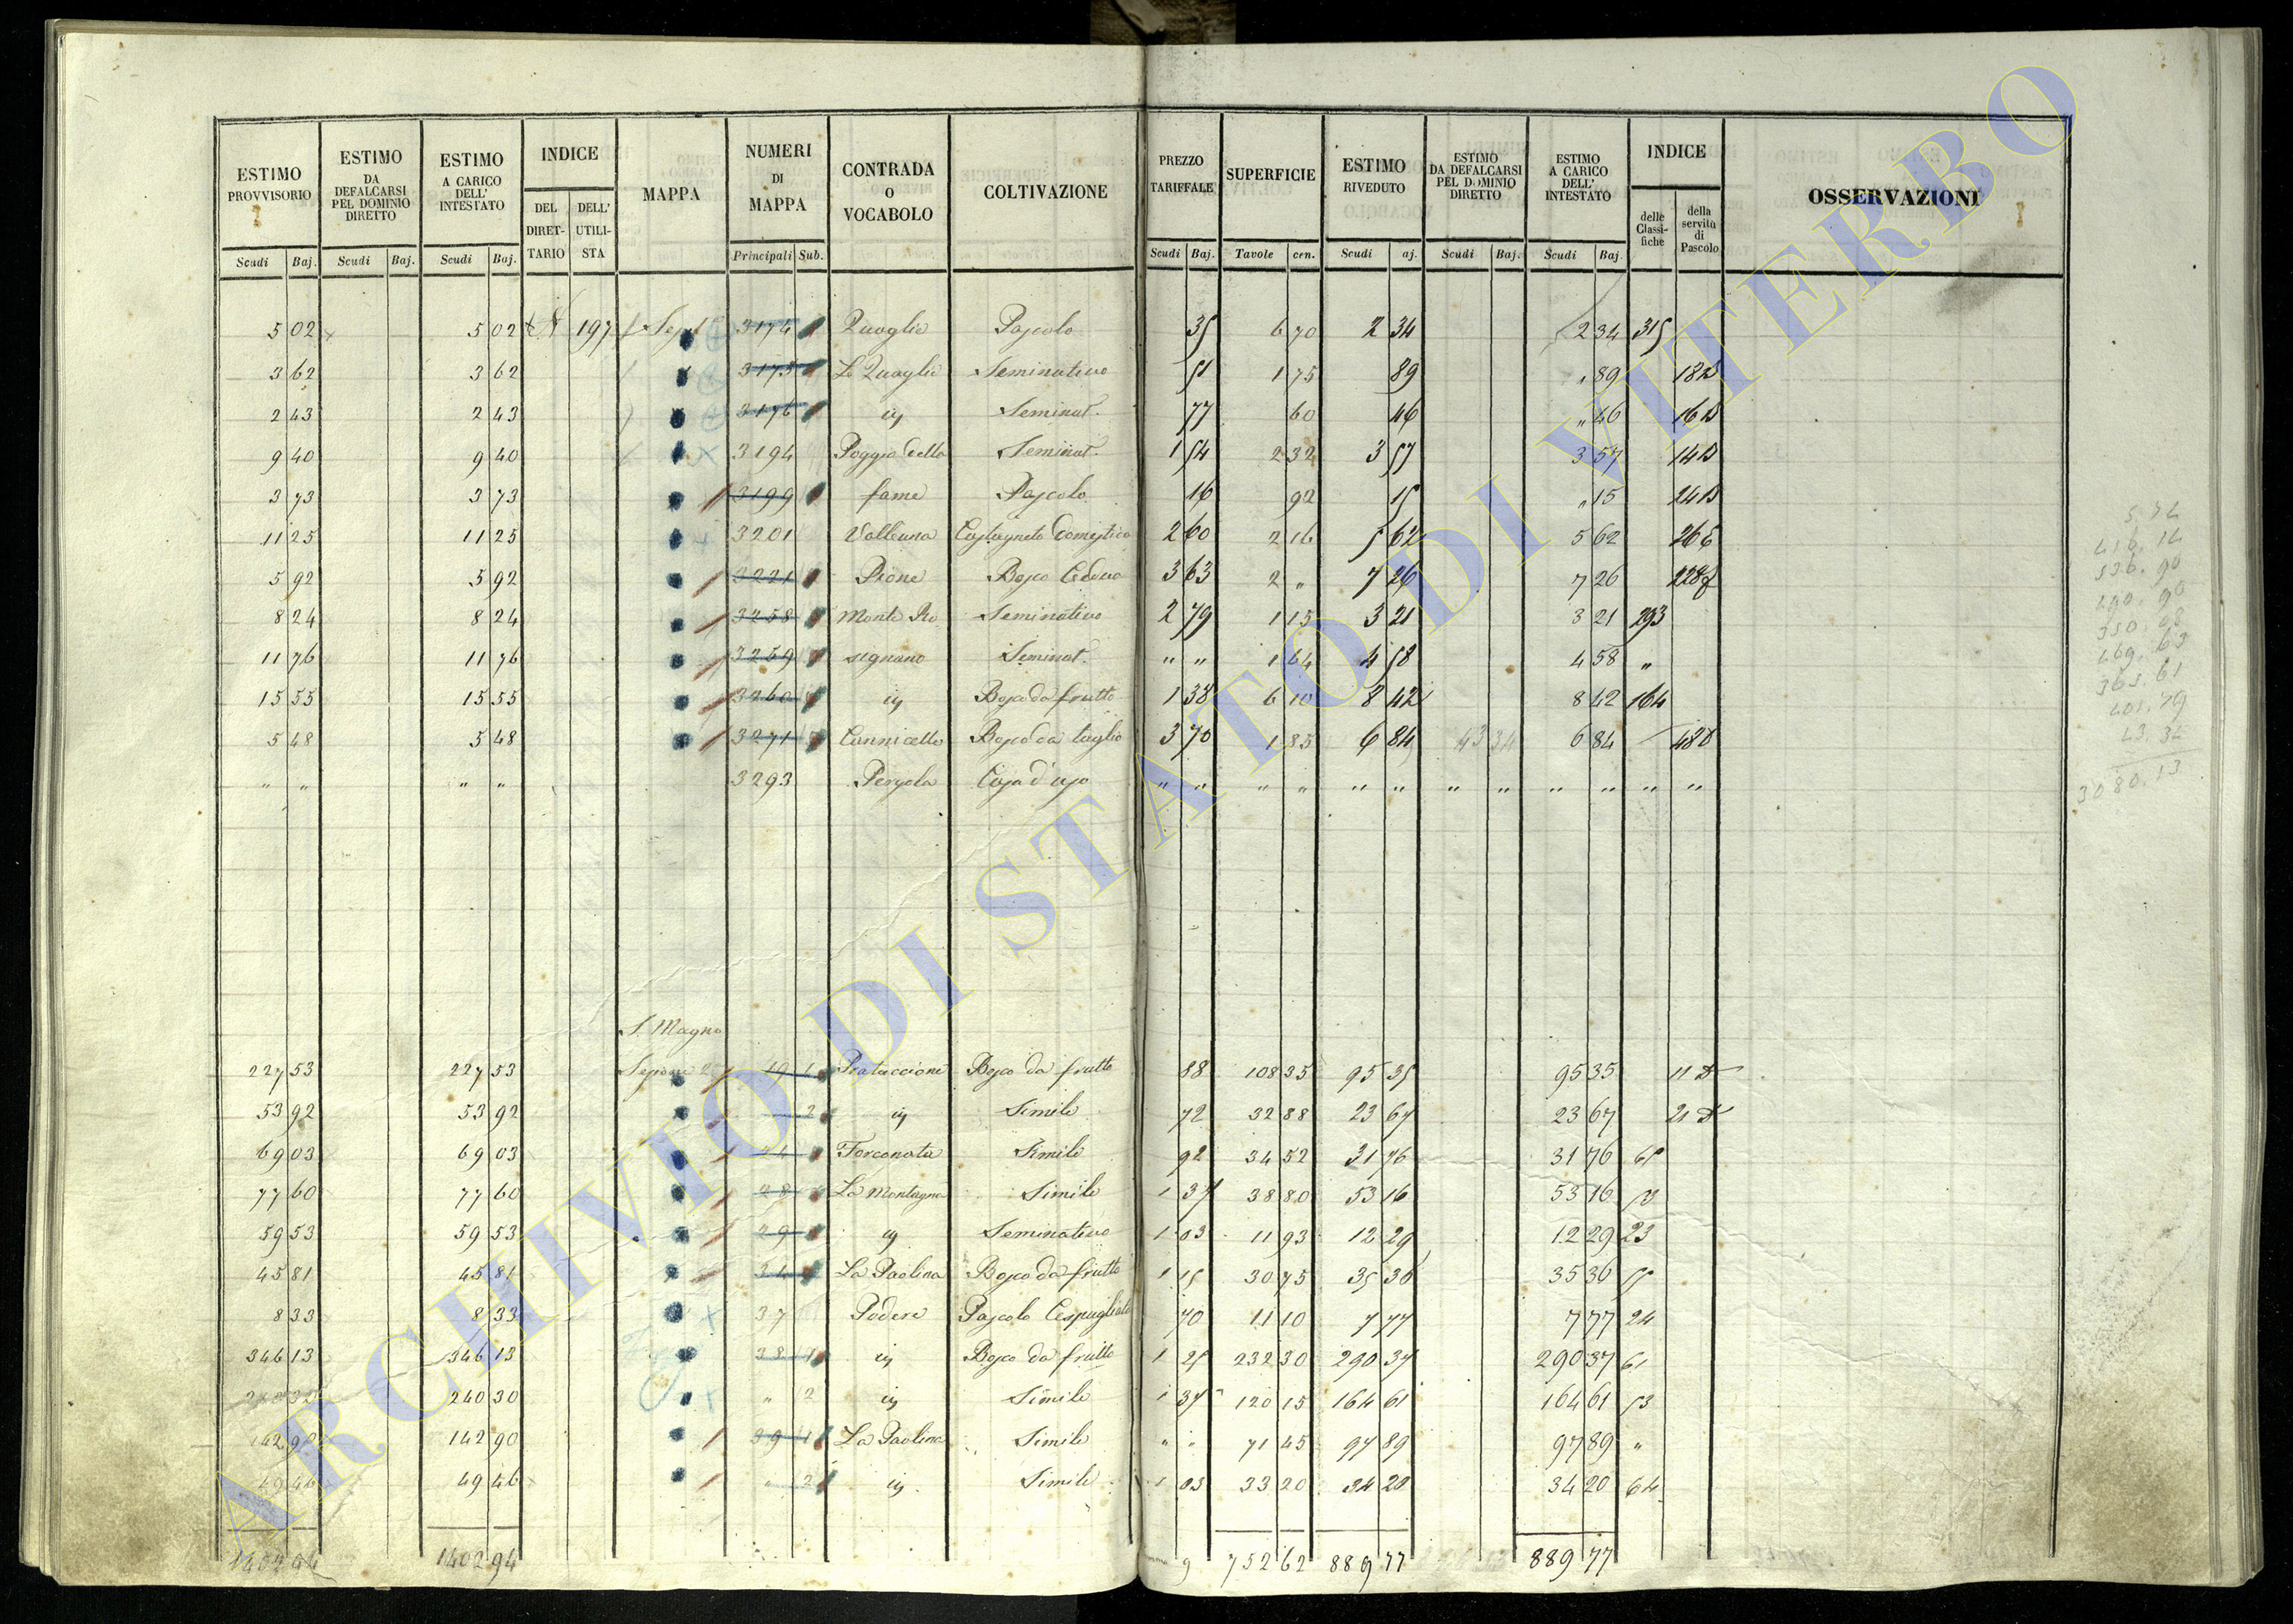 ESTIMO PROVVISORIO | ESTIMO DA DEFALCARSI PEL DOMINIO DIRETTO | ESTIMO A CARICO DELL' INTESTATO | INDICE | MAPPA | NUMERI DI MAPPA | CONTRADA O VOCABOLO | COLTIVAZIONE | PREZZO TARIFFALE | SUPERFICIE | ESTIMO RIVEDUTO | ESTIMO DA DEFALCARSI PEL DOMINIO DIRETTO | ESTIMO A CARICO DELL' INTESTATO | INDICE | OSSERVAZIONI
DEL DIRETTARIO | DELL' UTILISTA | delle Classifiche | della servitù di Pascolo
Scudi | Baj. | Scudi | Baj. | Scudi | Baj. | Principali | Sub. | Scudi | Baj. | Tavole | cen. | Scudi | aj. | Scudi | Baj. | Scudi | Baj.
5 02 | 5 02 | 197 | 3174 | Quaglie | Pascolo | 35 | 6 70 | 2 34 | 2 34 | 315
3 62 | 3 62 | 3175 | Le Quaglie | Seminativo | 51 | 1 75 | 89 | " 89 | 18D
2 43 | 2 43 | 3176 | ivi | Seminat. | 77 | 60 | 46 | " 46 | 16D
9 40 | 9 40 | 3194 | Poggio della | Seminat. | 1 54 | 2 32 | 3 57 | 3 57 | 14D
3 73 | 3 73 | 3199 | fame | Pascolo | 16 | 92 | 15 | " 15 | 24D
11 25 | 11 25 | 3201 | Valleuna | Castagneto Domestico | 2 60 | 2 16 | 5 62 | 5 62 | 26
5 92 | 5 92 | 3221 | Pione | Bosco Ceduo | 3 63 | 2 " | 7 26 | 7 26 | 228
8 24 | 8 24 | 3258 | Monte Ro | Seminativo | 2 79 | 1 15 | 3 21 | 3 21 | 293
11 76 | 11 76 | 3259 | signano | Seminat. | " " | 1 64 | 4 58 | 4 58 | "
15 55 | 15 55 | 3260 | ivi | Bosco da frutto | 1 38 | 6 10 | 8 42 | 8 42 | 164
5 48 | 5 48 | 3271 | Cannicella | Bosco da taglio | 3 70 | 1 85 | 6 84 | 43 34 | 6 84 | 48D
" " | " " | 3293 | Pergola | Casa d'uso | " " | " " | " " | " " | " " | " "
S. Magno
227 53 | 227 53 | Sezione 2 | 19 1 | Pontaccione | Bosco da frutto | 88 | 108 35 | 95 35 | 95 35 | 11 D
53 92 | 53 92 | 2 | ivi | Simile | 72 | 32 88 | 23 67 | 23 67 | 21 D
69 03 | 69 03 | 24 | Forconata | Simile | 92 | 34 52 | 31 76 | 31 76 | 65
77 60 | 77 60 | 28 | La Montagna | Simile | 1 37 | 38 80 | 53 16 | 53 16 | 53
59 53 | 59 53 | 29 | ivi | Seminativo | 1 03 | 11 93 | 12 29 | 12 29 | 23
45 81 | 45 81 | 34 | La Paolina | Bosco da frutto | 1 15 | 30 75 | 35 36 | 35 36
8 33 | 8 33 | 37 | Podere | Pascolo Cespugliato | 70 | 11 10 | 7 77 | 7 77 | 24
346 13 | 346 13 | 38 1 | ivi | Bosco da frutto | 1 25 | 232 30 | 290 37 | 290 37 | 61
240 30 | " 2 | ivi | Simile | 1 37 | 120 15 | 164 61 | 164 61 | 53
142 90 | 142 90 | 39 1 | La Paolina | Simile | " " | 71 45 | 97 89 | 97 89 | "
49 46 | 49 46 | " 2 | ivi | Simile | 1 03 | 33 20 | 34 20 | 34 20 | 64
1402 94 | 1402 94 | 752 62 | 889 77 | 889 77
536.90
469.63
363.61
401.79
43.34
3080.13
ARCHIVIO DI STATO DI VITERBO